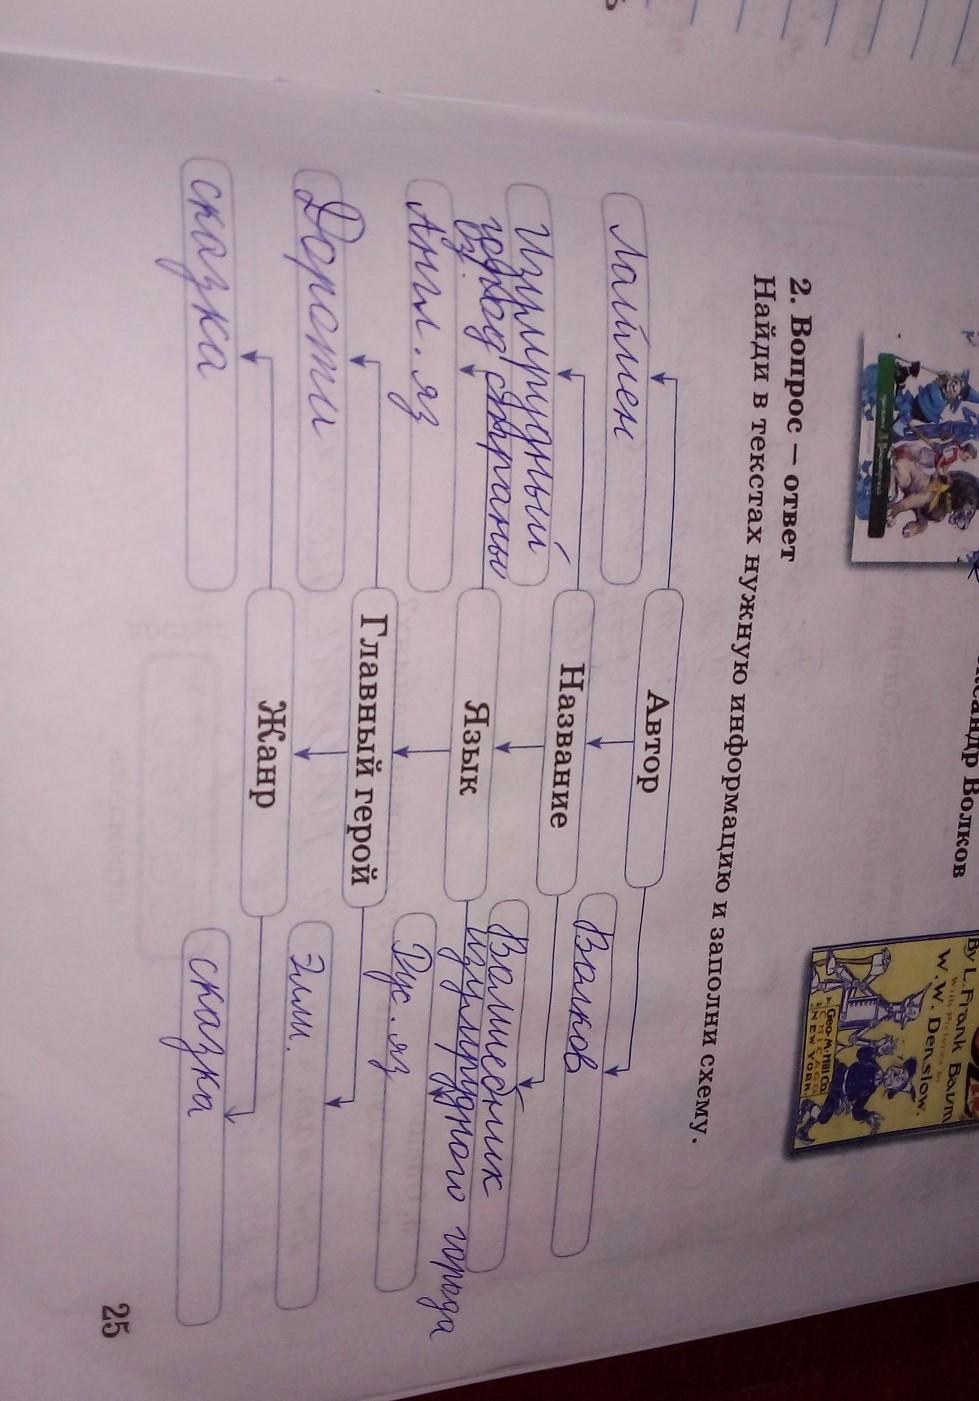 Александр Волков
By L. Frank Baum
With Pictures by
W. W. Denslow.
Geo. M. Hill Co.
CHICAGO
NEW YORK.
2. Вопрос — ответ
Найди в текстах нужную информацию и заполни схему.
Автор
Лаймен
Волков
Название
Изумрудный
город страны
Оз.
Волшебник
изумрудного города
Язык
Англ. яз
Рус. яз
Главный герой
Дороти
Элли.
Жанр
сказка
сказка
25